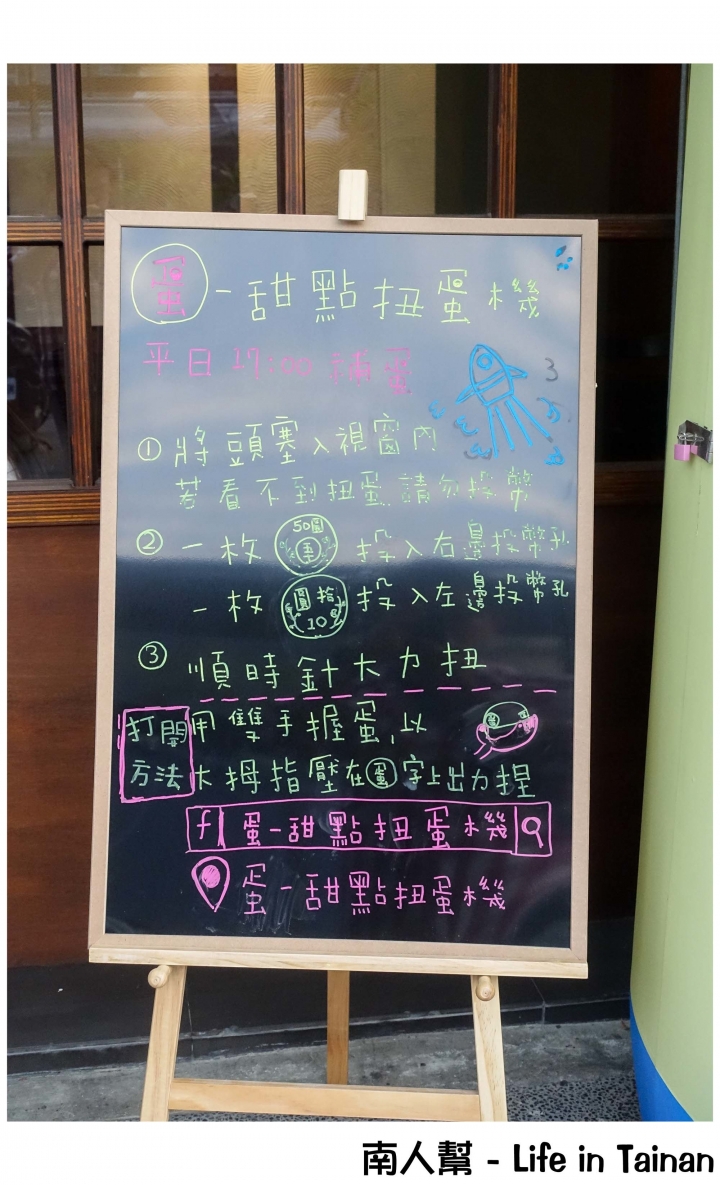 蛋-甜點扭蛋機
平日 17:00 補蛋
① 將頭塞入視窗內
若看不到扭蛋請勿投幣
② 一枚 50圓 投入右邊投幣孔
一枚 圓拾 10 投入左邊投幣孔
③ 順時針大力扭
打開方法
用雙手握蛋,以
大拇指壓在蛋字上出力捏
f 蛋-甜點扭蛋機
蛋-甜點扭蛋機
南人幫 - Life in Tainan